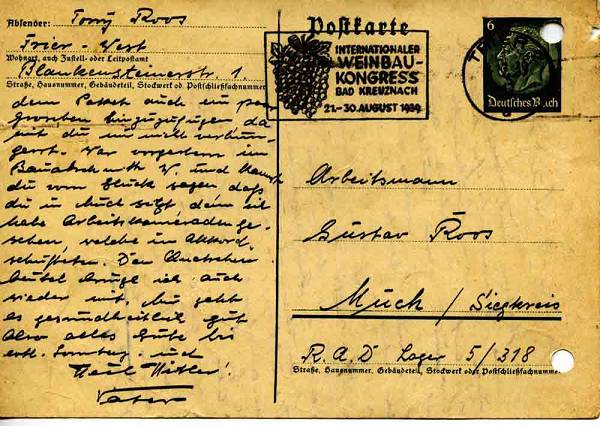 Absender: Tony Roos
Trier West
Wohnort, auch Zustell- oder Leitpostamt
Blankensteinerstr. 1.
Straße, Hausnummer, Gebäudeteil, Stockwerk od. Postschließfachnummer
dem Paket auch ein paar
Groschen hinzuzufügen da
mit du im nicht verhun-
gerst. War vorgestern im
Bauabschnitt W. und kannst
du von Glück sagen daß
du in Much bist denn ich
habe Arbeitskameraden ge-
sehen, welche im Akkord
schufteten. Den
beutel bringe ich auch
wieder mit. Mir geht
es gesundheitlich gut
Also alles Gute bis
evtl. Sonntag und
Heil Hitler!
Vater
Postkarte
INTERNATIONALER
WEINBAU-
KONGRESS
BAD KREUZNACH
21.-30. AUGUST 1939
6
Deutsches Reich
Arbeitsmann
Gustav Roos
Much / Siegkreis
R.A.D Lager 5/318
Straße, Hausnummer, Gebäudeteil, Stockwerk oder Postschließfachnummer